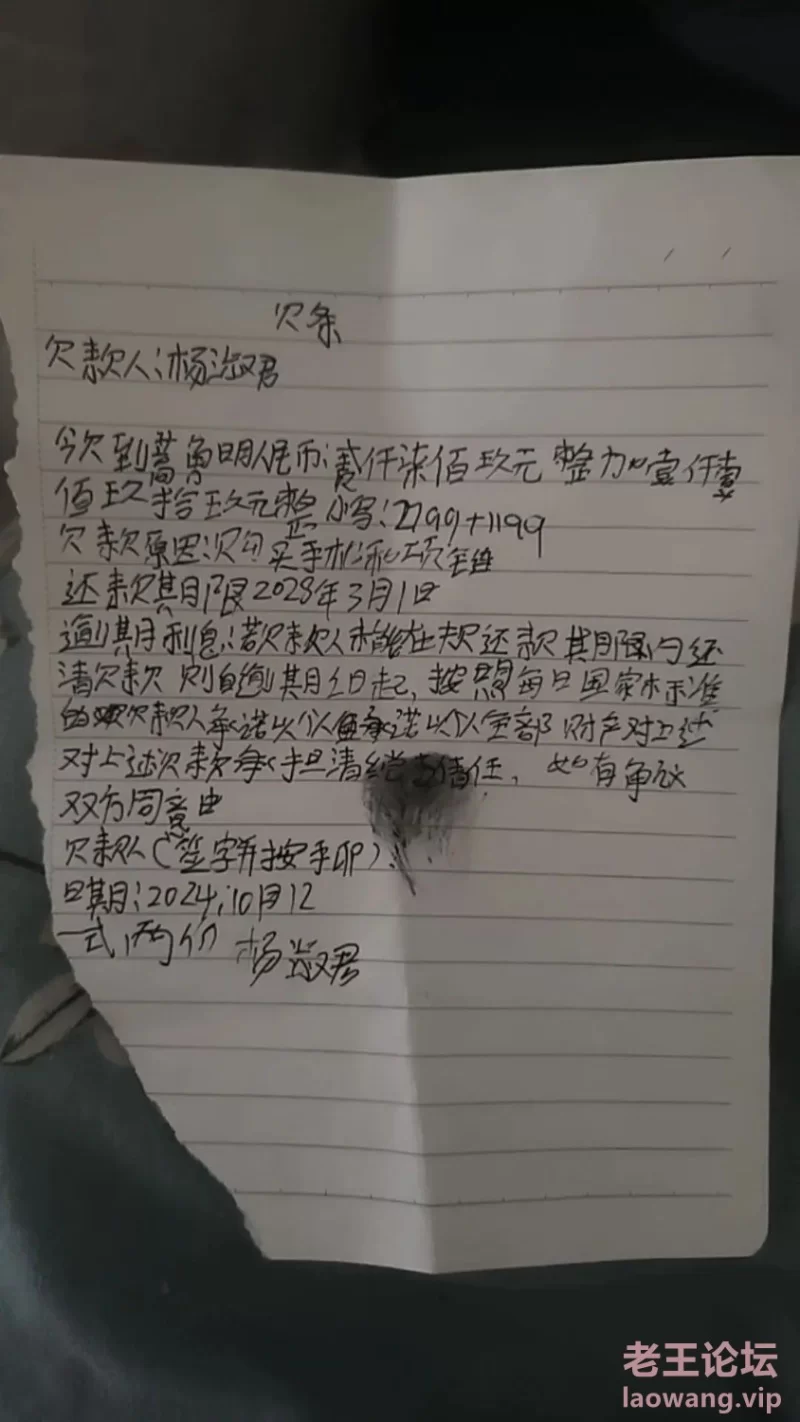 欠条
欠款人:杨淑君
今欠到 明人民币:贰仟柒佰玖元整加壹仟壹
佰玖拾玖元整 小写:2799+1199
欠款原因:欠 买手机和项链
还款期限2028年3月1日
逾期利息:若欠款人 在规定还款期限内还
清欠款 则自逾期之日起,按照每日国家标准
的 欠款人承诺以个人 承诺以个人全部财产对上述
对上述欠款承担清 责任,如有争议
双方同意由
欠款人(签字并按手印):
日期:2024.10月12
一式两份 杨淑君
老王论坛
laowang.vip